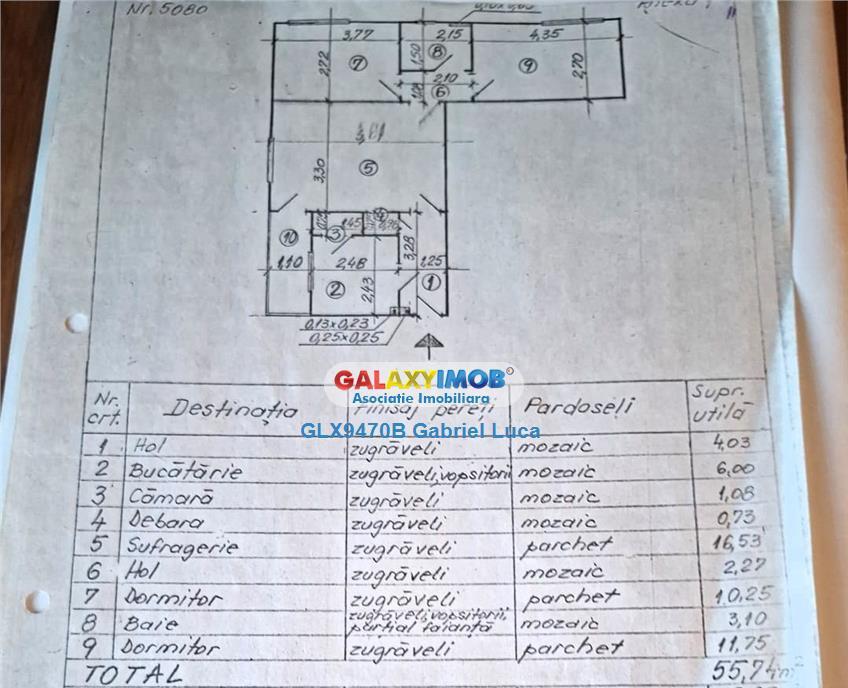 Nr. 5080
3,77
2,15
4,35
1,50
8
2,72
7
9
2,70
2,10
6
5
3,30
1,45
3
3,28
10
1,10
2,48
1,25
2
2,43
1
0,13x0,23
0,25x0,25
GALAXYIMOB
Asociatie Imobiliara
GLX9470B Gabriel Luca
Nr. crt. Destinația Finisaj pereți Pardoseli Supr. utilă
1 Hol zugrăveli mozaic 4,03
2 Bucătărie zugrăveli, vopsitorii mozaic 6,00
3 Cămară zugrăveli mozaic 1,08
4 Debara zugrăveli mozaic 0,73
5 Sufragerie zugrăveli parchet 16,53
6 Hol zugrăveli mozaic 2,27
7 Dormitor zugrăveli parchet 10,25
8 Baie zugrăveli, vopsitorii, parțial faianță mozaic 3,10
9 Dormitor zugrăveli parchet 11,75
TOTAL 55,74